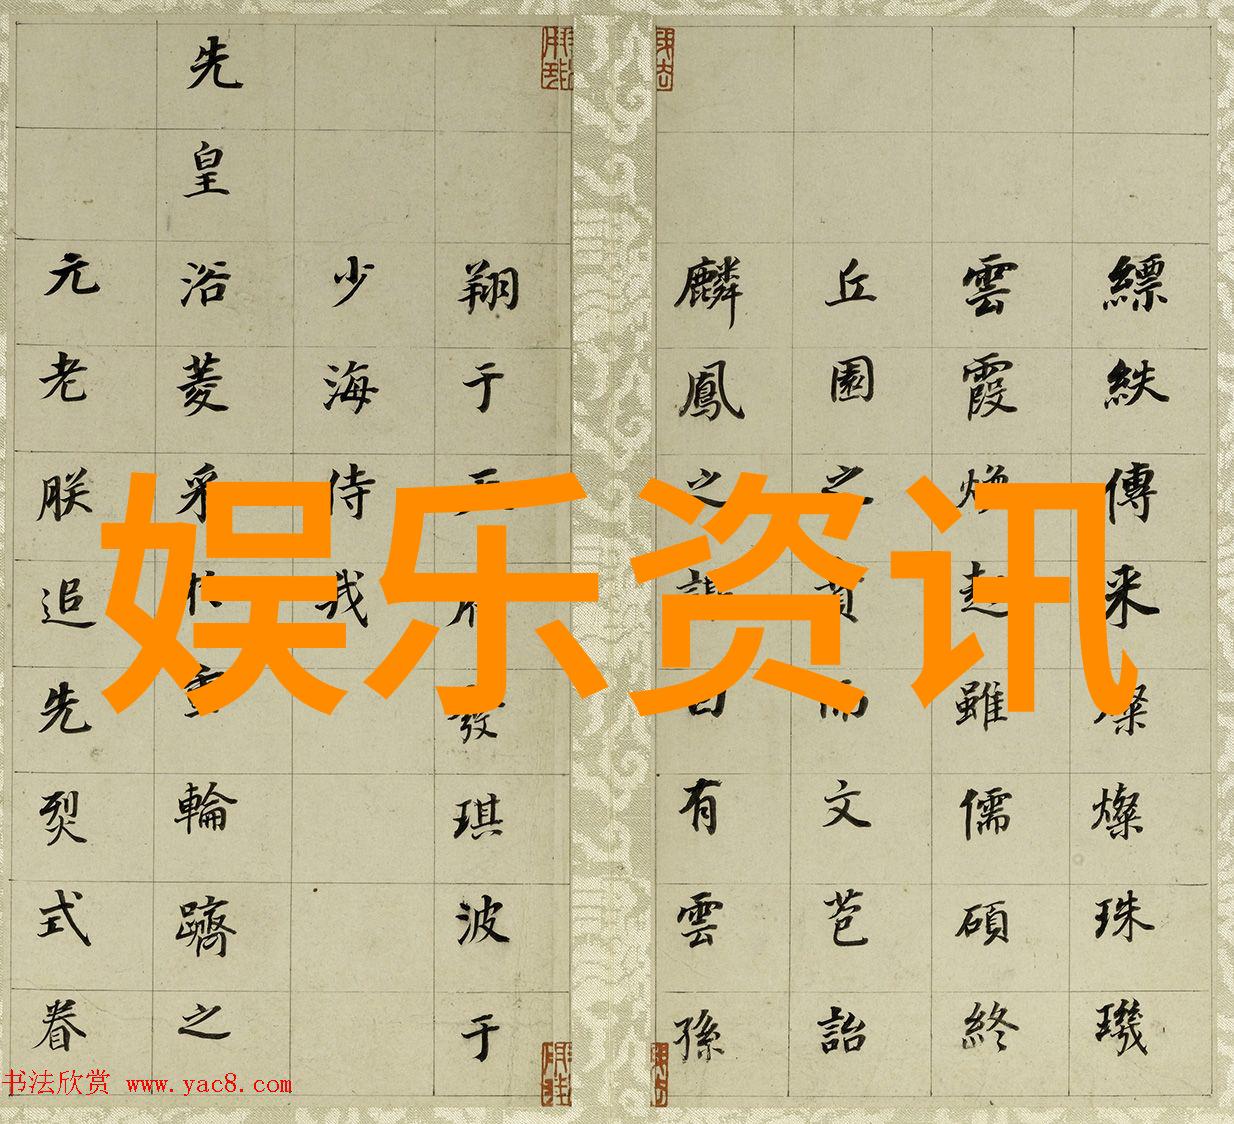 縹帙傳来燦燦珠璣
雲霞煥起雖儒碩終
丘園之賁而文苞詒
麟鳳之

有雲孫
翔于天

發琪波于
少海侍我
先皇浴菱采

重輪躋之
元老朕追先烈式眷
娱乐资讯
书法欣赏 www.yac8.com